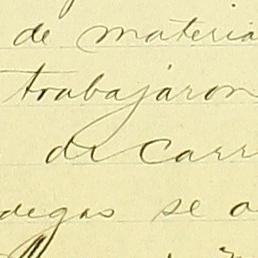 de materia
trabajaron
de Carr
degas se a